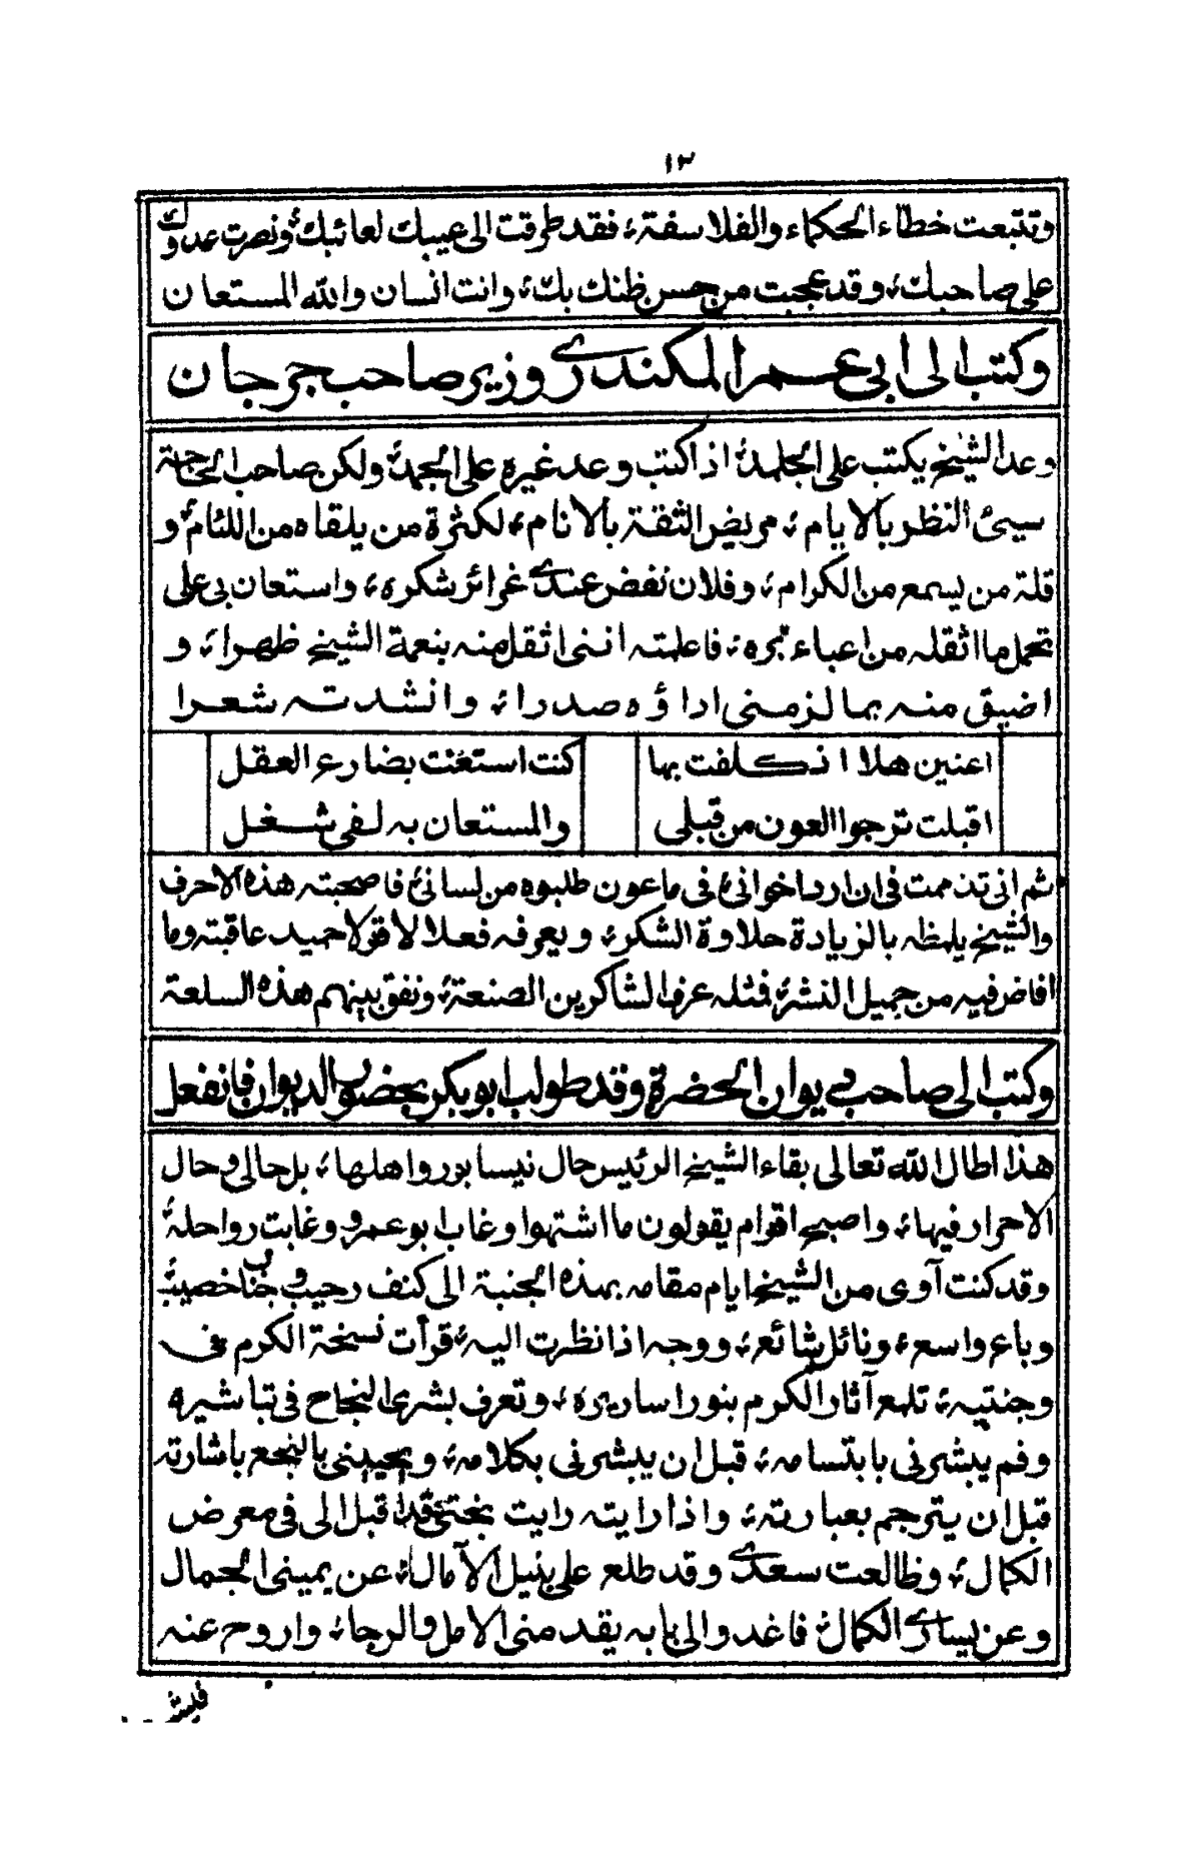 ١٣
وتتبعت خطاء الحكماء والفلاسفة؛ فقد طرقت الى عيبك لعائبك ونصرت عدوك
على صاحبك؛ وقد عجبت من حسن ظنك بك؛ وانت انسان والله المستعان
وكتب الى ابي عمر المكندري وزير صاحب جرجان
وعد الشيخ يكتب على الجلمد؛ اذا كتب وعد غيره على الجمد؛ ولكن صاحب الحاجة
سيئ النظر بالايام؛ مريض الثقة بالانام؛ لكثرة من يلقاه من اللئام؛ و
قلة من يسمع من الكرام؛ وفلان نفض عندي غرائر شكره؛ واستعان بي على
تحمل ما اثقله من اعباء بره؛ فاعلمته انني اثقل منه بنعمة الشيخ ظهرا؛ و
اضيق منه بما لزمني اداؤه صدرا؛ وانشدته شعرا
اعنين هلا اذ كلفت بها كنت استغنت بضارع العقل
اقبلت ترجوا العون من قبلي والمستعان به لفي شغل
ثم اني تذممت في ان ارد اخواني؛ في ماعون طلبوه من لساني؛ فاصحبته هذه الاحرف
والشيخ يلمظه بالزيادة حلاوة الشكر؛ ويعرفه فعلا لا قولا حميد عاقبته وما
افاض فيه من جميل النشر؛ فمثله عرف الشاكرين الصنعة؛ ونفق بينهم هذه السلعة
وكتب الى صاحب ديوان الحضرة وقد طولب ابو بكر بحضور الديوان فانفعل
هذا اطال الله تعالى بقاء الشيخ الرئيس حال نيسابور واهلها؛ بل حالي وحال
الاحرار فيها؛ واصبح اقوام يقولون ما اشتهوا وغاب ابو عمرو وغابت رواحله؛
وقد كنت آوى من الشيخ ايام مقامه بهذه الجنبة الى كنف رحيب وجناب خصيب؛
وباع واسع؛ ونائل شائع؛ ووجه اذا نظرت اليه؛ قرأت نسخة الكرم في
وجنتيه؛ تلمع آثار الكرم بنور اساريره؛ وتعرف بشرى النجاح في تباشيره
وفم يبشرني بابتسامه؛ قبل ان يبشرني بكلامه؛ ويجيبني بالنجع باشارته
قبل ان يترجم بعبارته؛ واذا رايته رايت بختي قد اقبل الى في معرض
الكمال؛ وظالعت سعدي وقد طلع على بنيل الآمال؛ عن يميني الجمال
وعن يساري الكمال؛ فاغدو الى بابه يقدمني الامل والرجا؛ واروح عنه